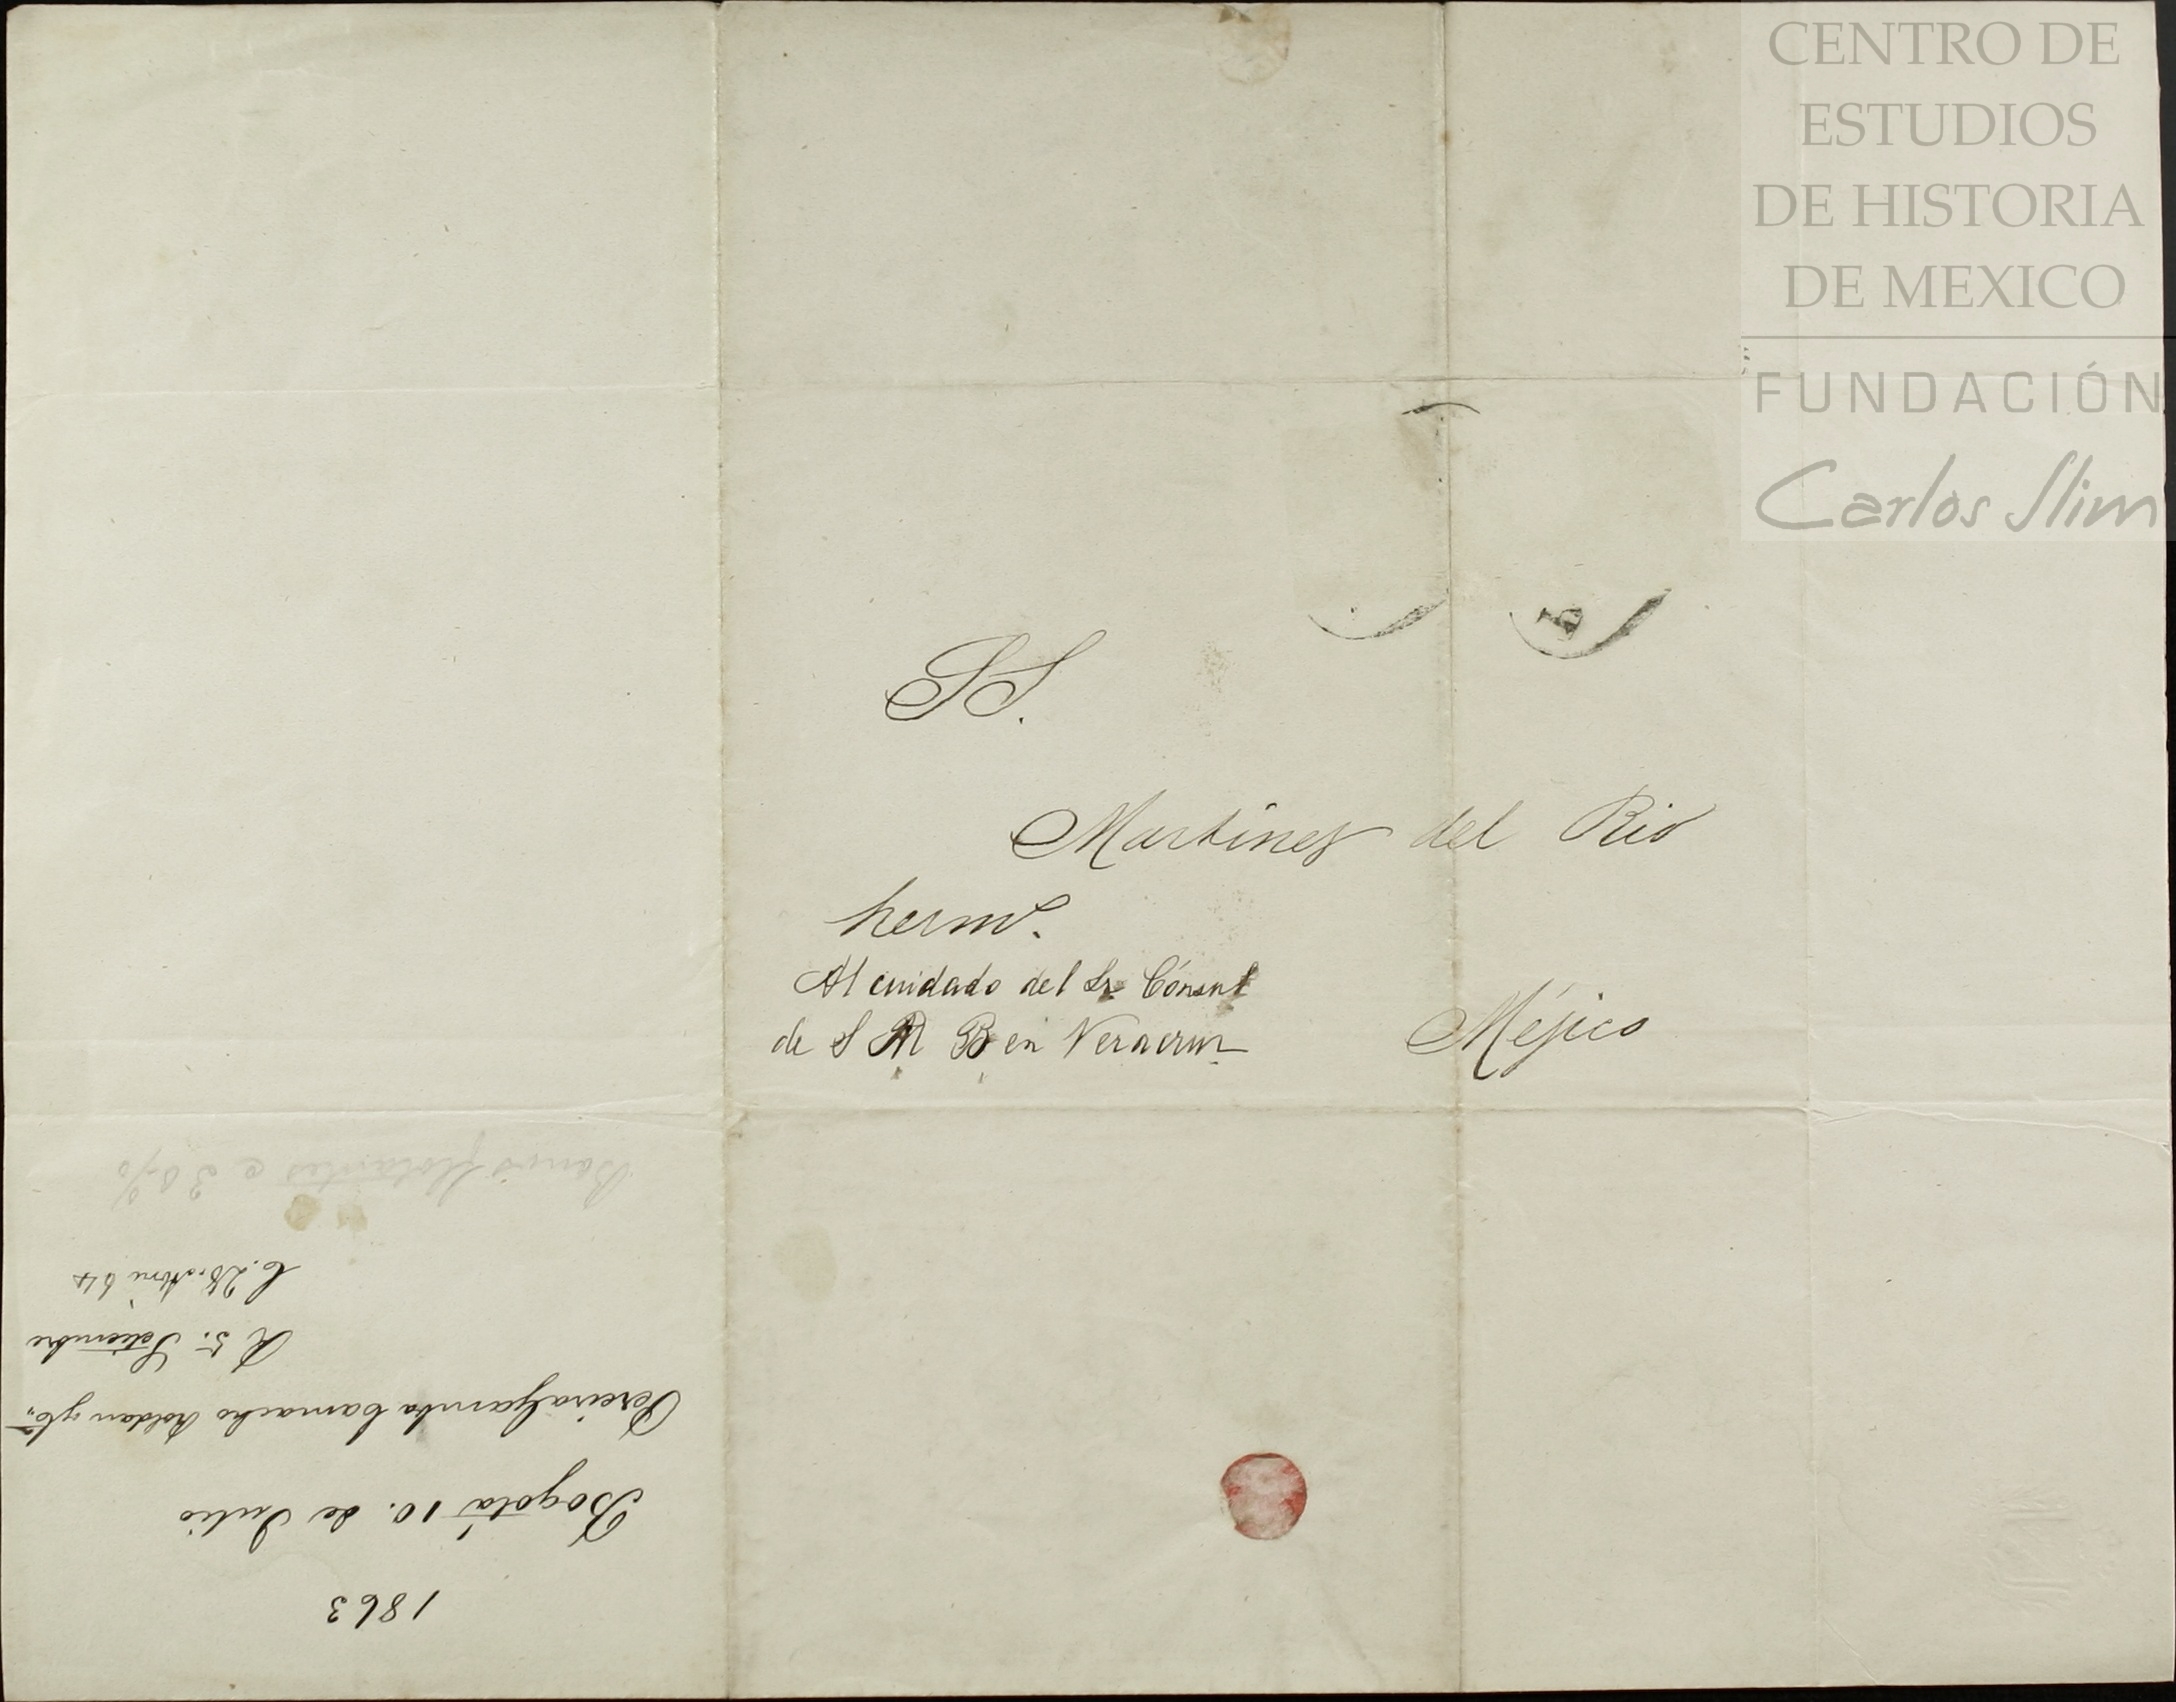 CENTRO DE
ESTUDIOS
DE HISTORIA
DE MEXICO
FUNDACIÓN
Carlos Slim
SS.
Martinez del Rio
hermº.
Al cuidado del Sr Cónsul
de S M B en Veracruz
Méjico
1863
Bogotá 10. de Julio
Pereira Gamba Camacho Roldan yCª.
R 5. Setiembre
C. 28. 64
Bonos flotantes a 30%